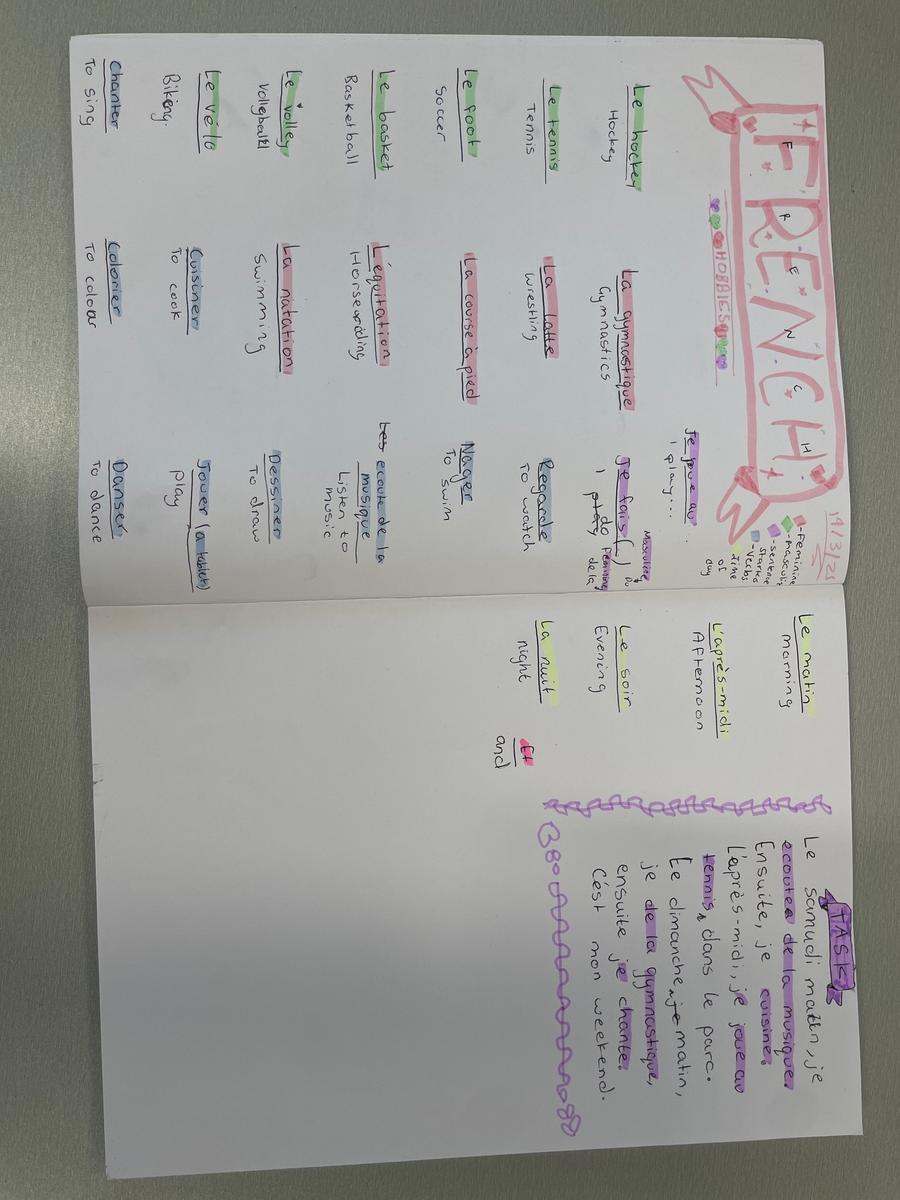 19/3/25
FRENCH
F R E N C H
HOBBIES
- Feminine
- masculin
- sentence
starter
- verbs
Time
of
day
Je joue au
I play...
Le hockey
Hockey
La gymnastique
Gymnastics
Je fais (...)
I play do
Masculine
du
Feminine
de la
Le tennis
Tennis
La latte
Wrestling
Regarde
To watch
Le foot
Soccer
La course à pied
Nager
To swim
Le basket
Basketball
L'équitation
Horseridding
Les ecoute de la
musique
Listen to
music
Le volley
Volleyball
La natation
Swimming
Dessiner
To draw
Le vélo
Biking.
Cuisiner
To cook
Jouer (la tablet)
play
Chanter
To sing
Colorier
To colour
Danser
To dance
Le matin
morning
L'après-midi
Afternoon
Le soir
Evening
La nuit
night
Et
and
TASK
Le samudi matin, je
ecoutea de la musique.
Ensuite, je cuisine.
L'après-midi, je joue au
tennis, dans le parc.
Le dimanche je matin,
je de la gymnastique,
ensuite je chante.
C'ést mon weekend.